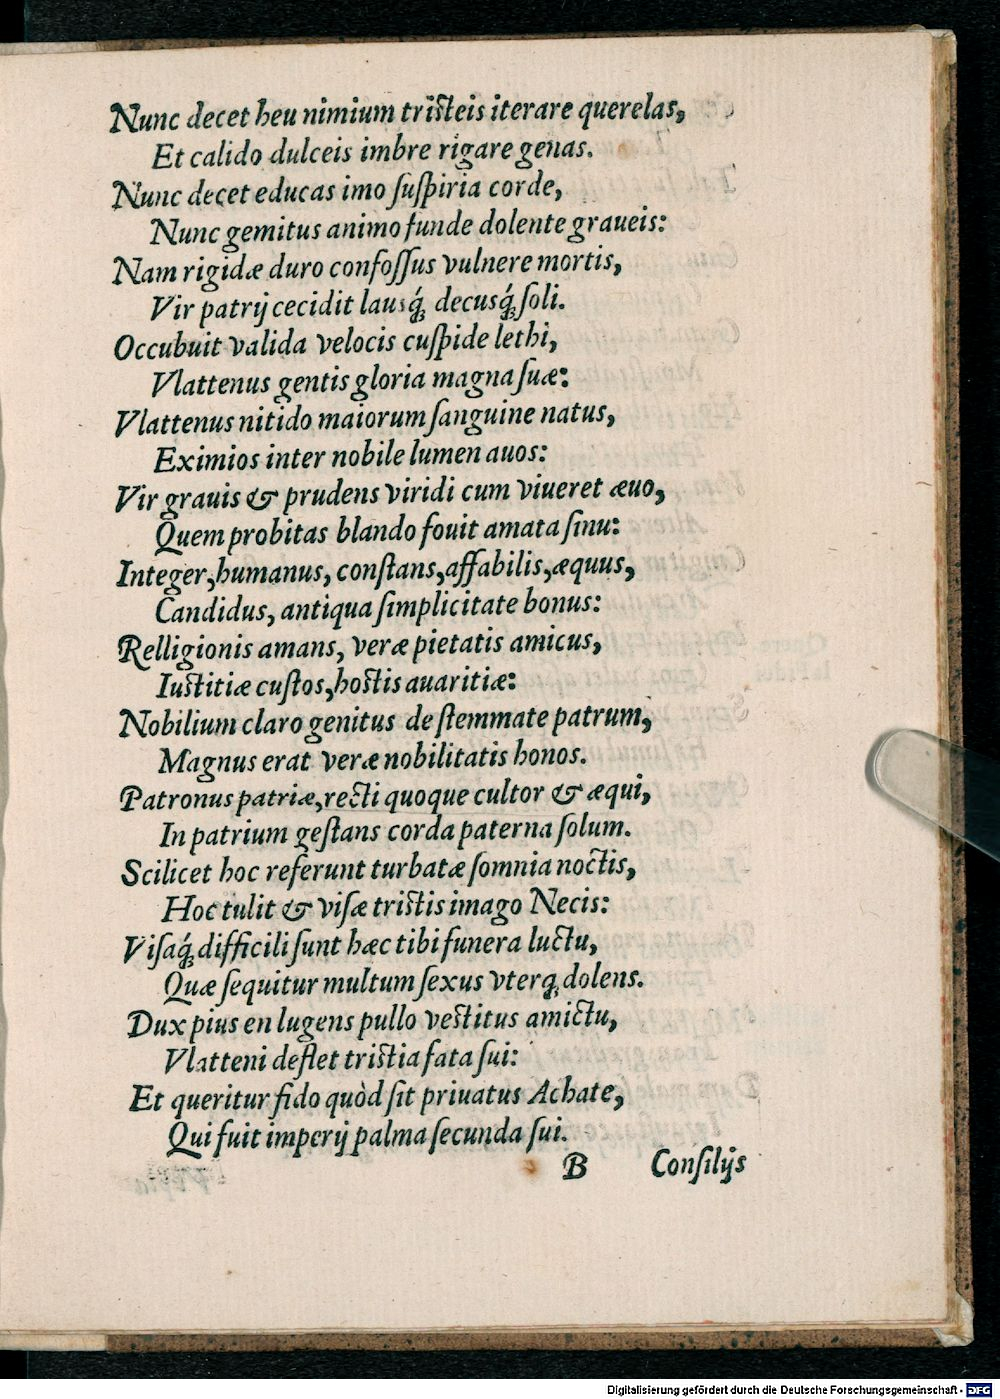 Nunc decet heu nimium tristeis iterare querelas,
Et calido dulceis imbre rigare genas.
Nunc decet educas imo ſuſpiria corde,
Nunc gemitus animo funde dolente graueis:
Nam rigidæ duro confoſſus vulnere mortis,
Vir patrij cecidit lausq́ꝫ decusq́ꝫ ſoli.
Occubuit valida velocis cuſpide lethi,
Vlattenus gentis gloria magna ſuæ:
Vlattenus nitido maiorum ſanguine natus,
Eximios inter nobile lumen auos:
Vir grauis & prudens viridi cum viueret æuo,
Quem probitas blando fouit amata ſinu:
Integer, humanus, conſtans, affabilis, æquus,
Candidus, antiqua ſimplicitate bonus:
Relligionis amans, veræ pietatis amicus,
Iustitiæ cuſtos, hostis auaritiæ:
Nobilium claro genitus de ſtemmate patrum,
Magnus erat veræ nobilitatis honos.
Patronus patriæ, recti quoque cultor & æqui,
In patrium geſtans corda paterna ſolum.
Scilicet hoc referunt turbatæ ſomnia noctis,
Hoc tulit & viſæ tristis imago Necis:
Viſaq́ꝫ difficili ſunt hæc tibi funera luctu,
Quæ ſequitur multum ſexus vterqꝫ dolens.
Dux pius en lugens pullo vestitus amictu,
Vlatteni deflet tristia fata ſui:
Et queritur fido quòd ſit priuatus Achate,
Qui fuit imperij palma ſecunda ſui.
B Conſilijs
Digitalisierung gefördert durch die Deutsche Forschungsgemeinschaft - DFG